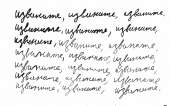 извините, извините, извините,
извините, извините, извините,
извините, извините, извините,
извините, извините, извините,
извините, извините, извините,
извините, извините, извините,
извините, извините, извините.